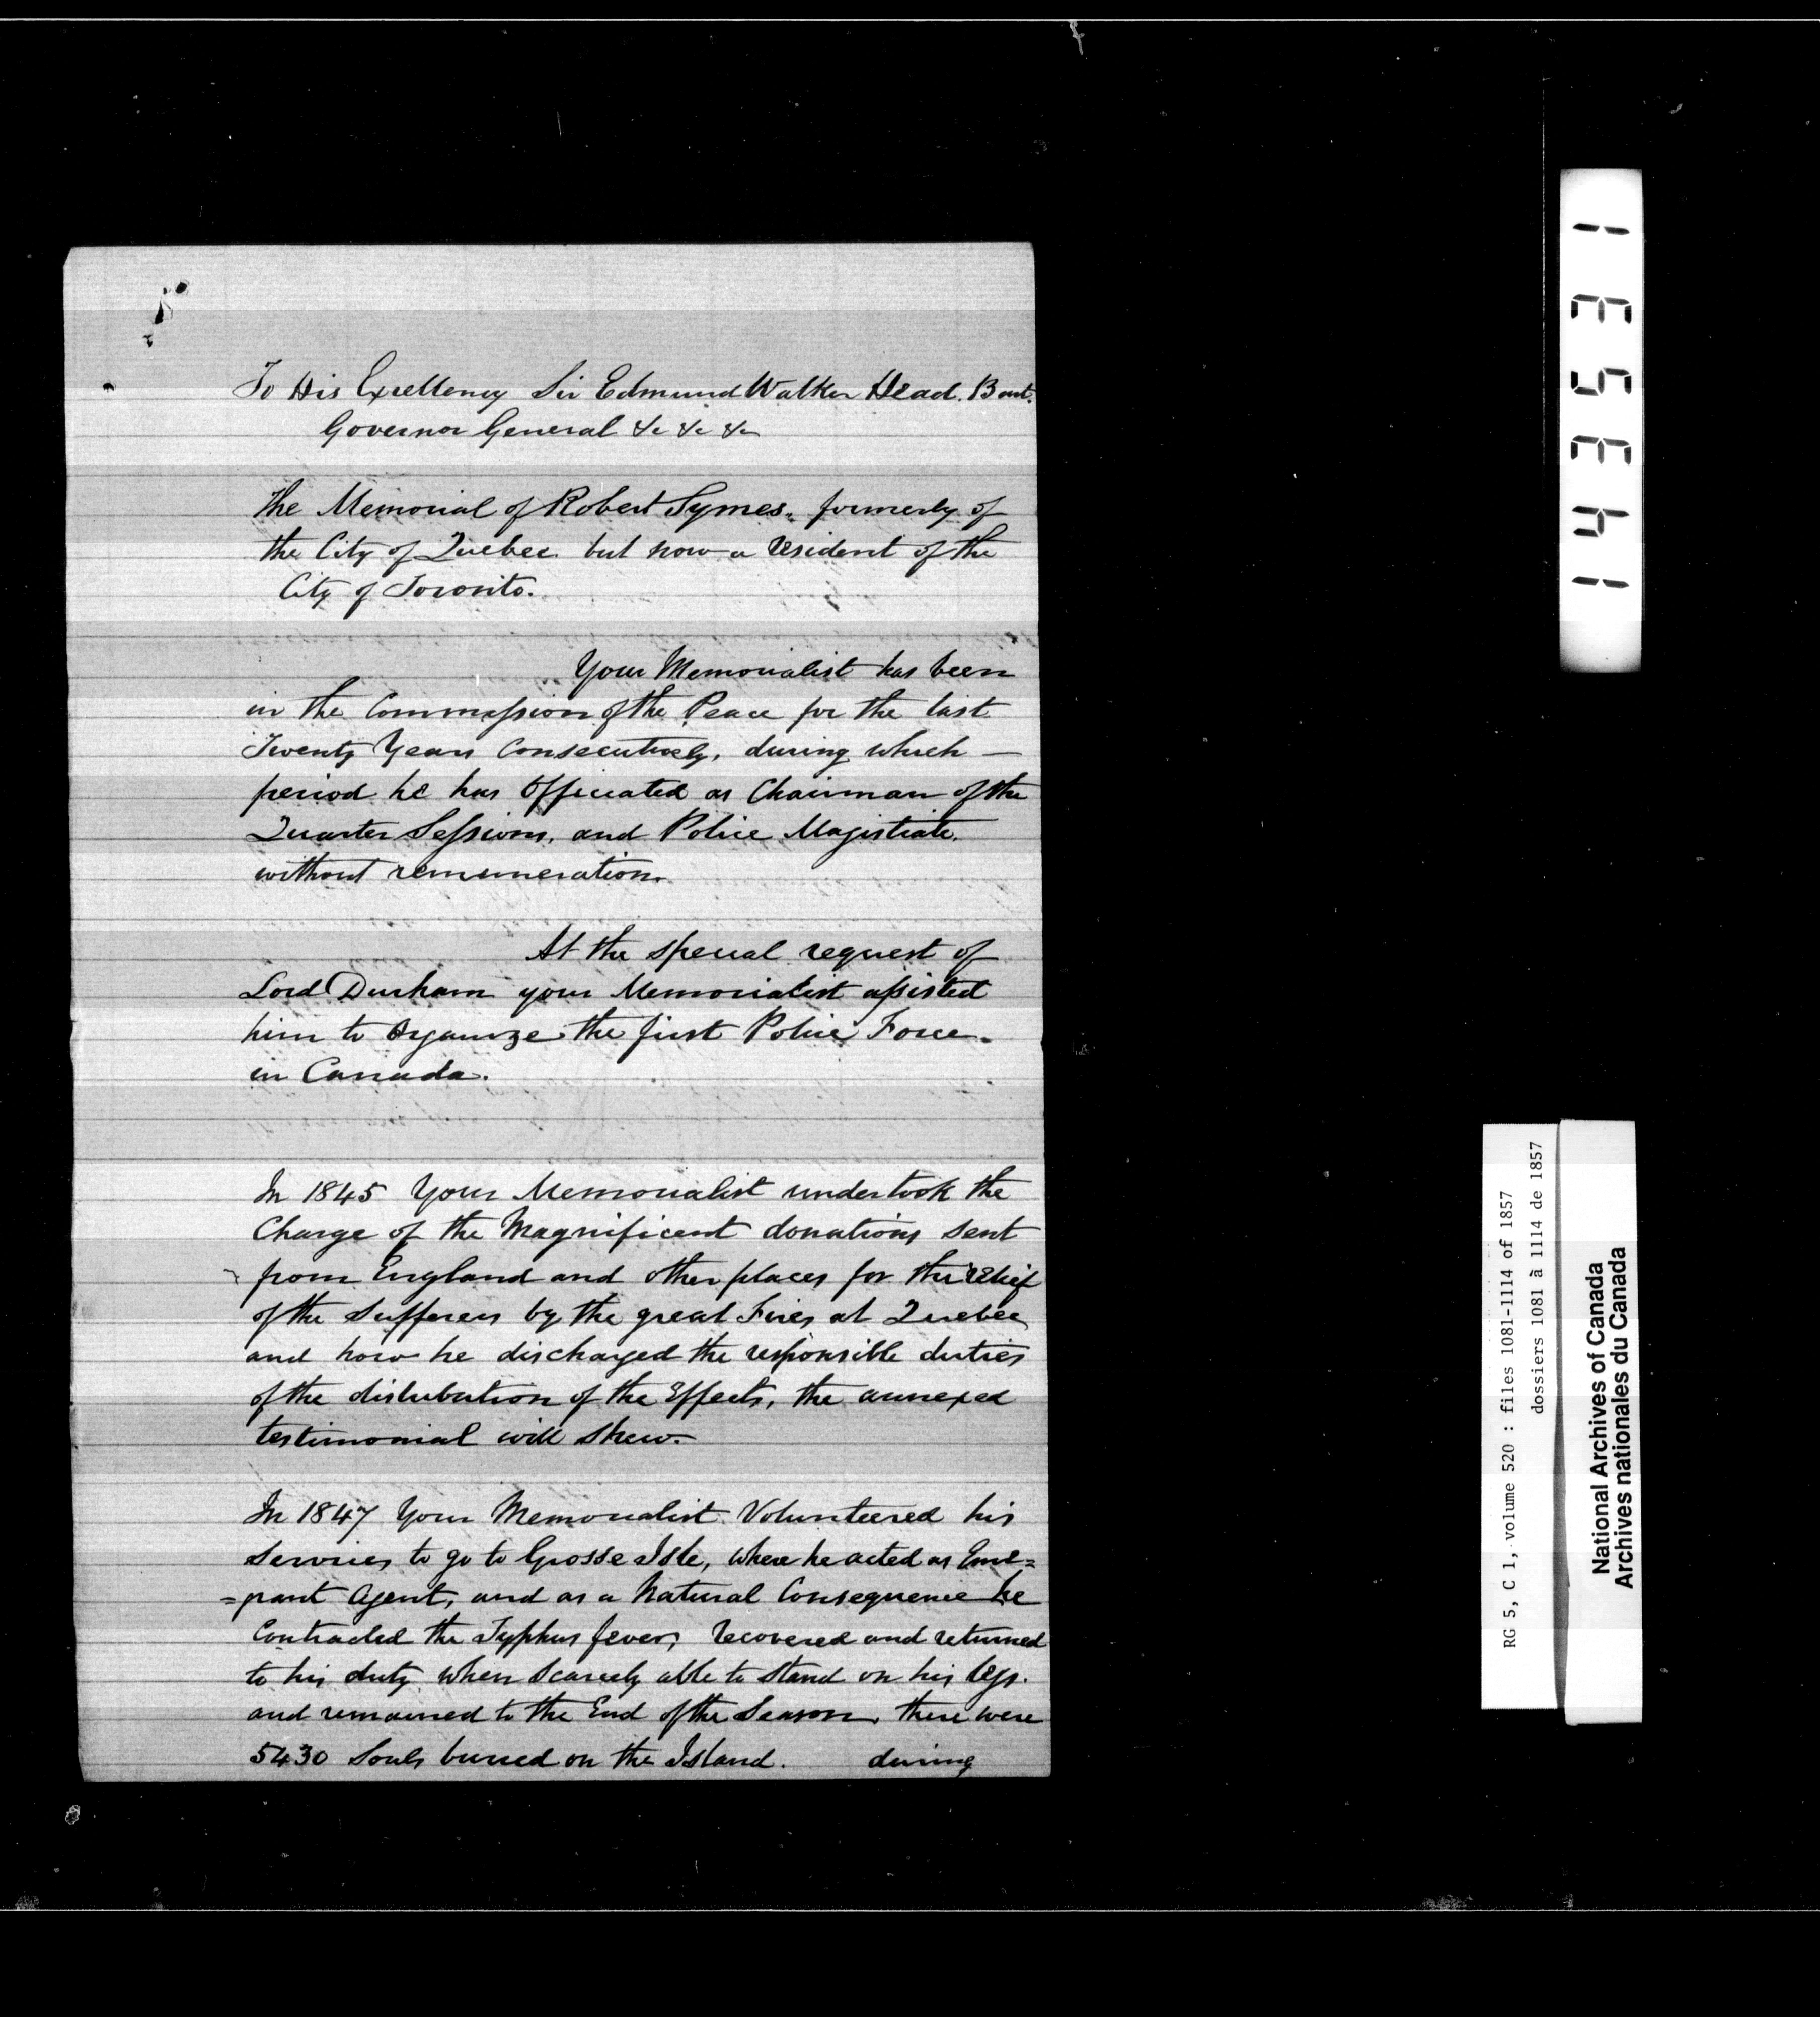 To His Excellency Sir Edmund Walker Head. Bart.
Governor General &c &c &c
The Memorial of Robert Symes, formerly of
the City of Quebec but now a resident of the
City of Toronto.
Your Memorialist has been
in the Commission of the Peace for the last
Twenty Years Consecutively, during which —
period he has Officiated as Chairman of the
Quarter Sessions, and Police Magistrate,
without remuneration.
At the special request of
Lord Durham your Memorialist assisted
him to Organize the first Police Force
in Canada.
In 1845 Your Memorialist undertook the
Charge of the Magnificent donations sent
from England and other places for the relief
of the Sufferers by the great Fires at Quebec
and how he discharged the responsible duties
of the distribution of the Effects, the annexed
testimonial will shew.
In 1847 Your Memorialist Volunteered his
Services to go to Grosse Isle, where he acted as Emi=
=grant Agent, and as a Natural Consequence he
Contracted the Typhus fever, recovered and returned
to his duty when Scarcely able to stand on his legs.
and remained to the End of the Season, there were
5430 Souls buried on the Island. during
143531
RG 5, C 1, volume 520 : files 1081-1114 of 1857
dossiers 1081 à 1114 de 1857
National Archives of Canada
Archives nationales du Canada